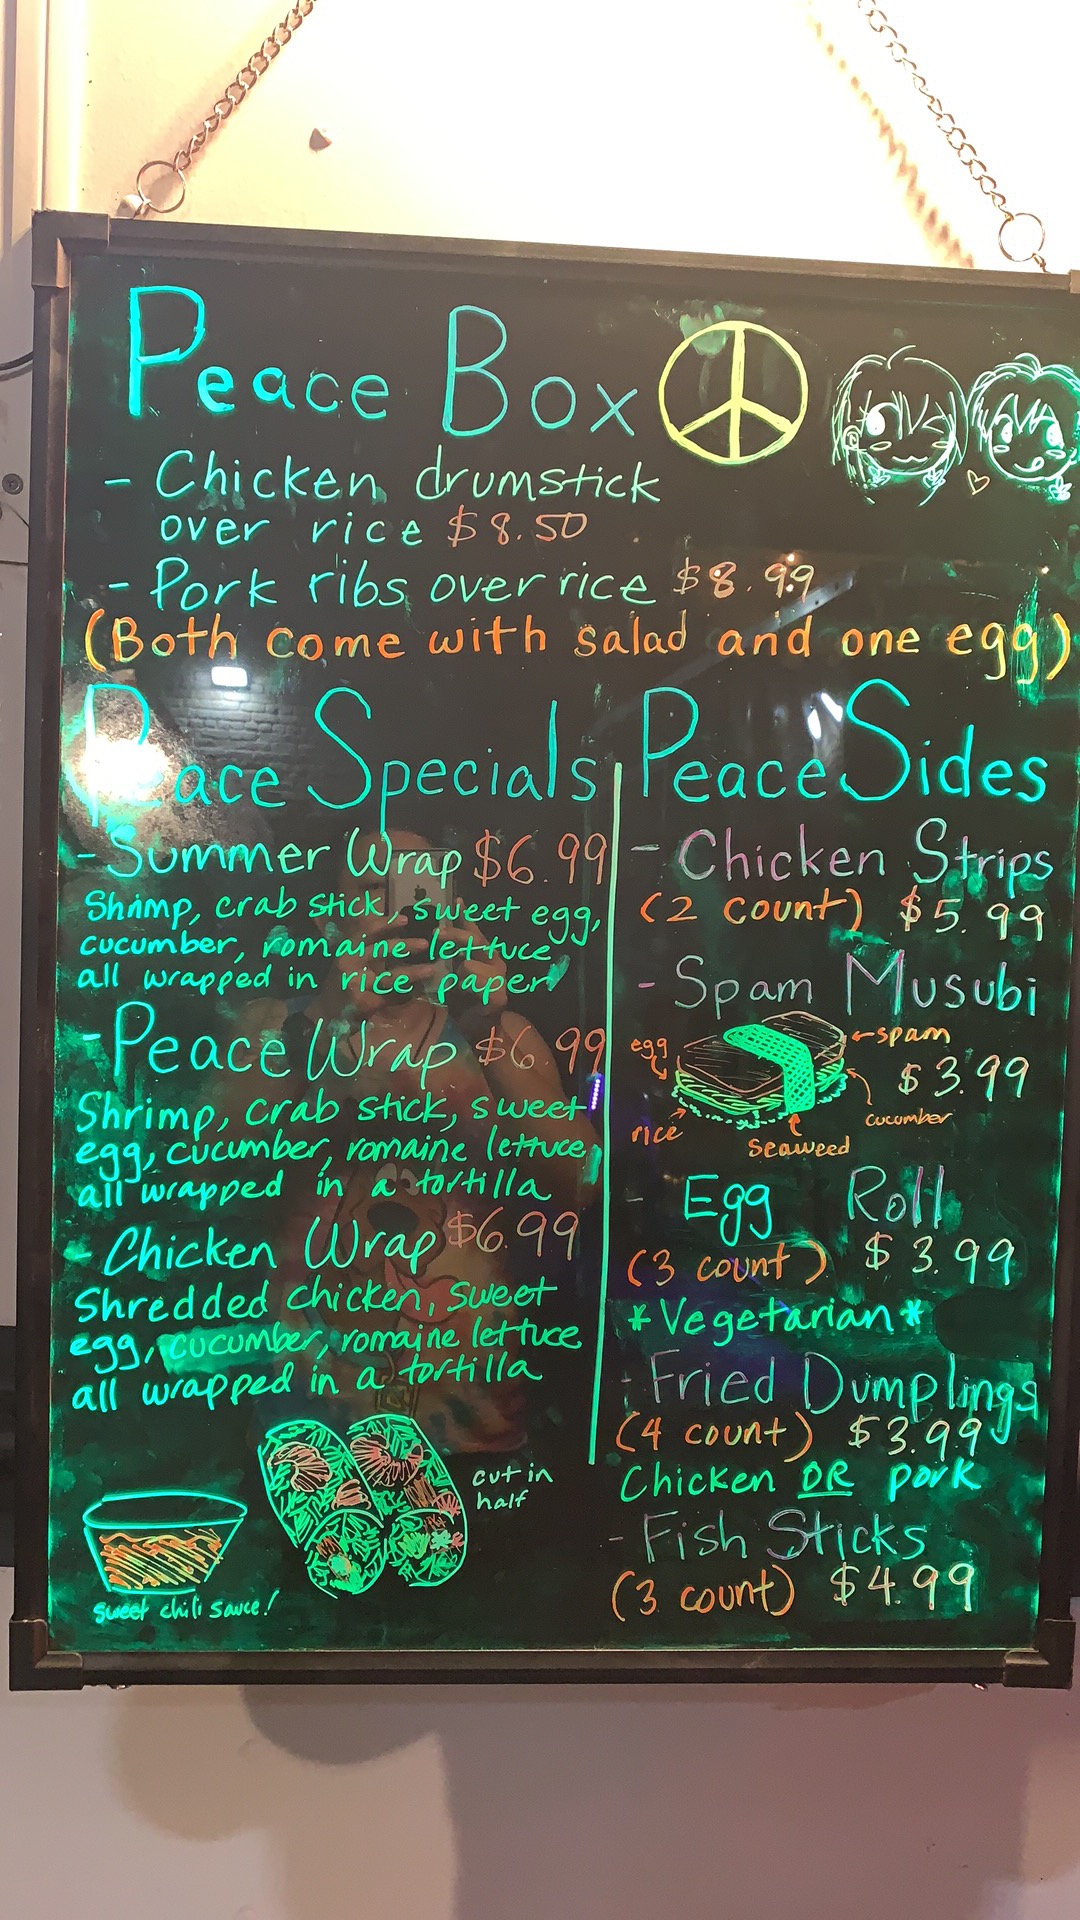 Peace Box
- Chicken drumstick
over rice $8.50
- Pork ribs over rice $8.99
(Both come with salad and one egg)
Peace Specials
- Summer Wrap $6.99
Shrimp, crab stick, sweet egg,
cucumber, romaine lettuce
all wrapped in rice paper
- Peace Wrap $6.99
Shrimp, crab stick, sweet
egg, cucumber, romaine lettuce,
all wrapped in a tortilla
- Chicken Wrap $6.99
Shredded chicken, sweet
egg, cucumber, romaine lettuce
all wrapped in a tortilla
cut in
half
sweet chili sauce!
Peace Sides
- Chicken Strips
(2 count) $5.99
- Spam Musubi
egg
spam
$3.99
cucumber
rice
seaweed
- Egg Roll
(3 count) $3.99
*Vegetarian*
- Fried Dumplings
(4 count) $3.99
Chicken OR pork
- Fish Sticks
(3 count) $4.99